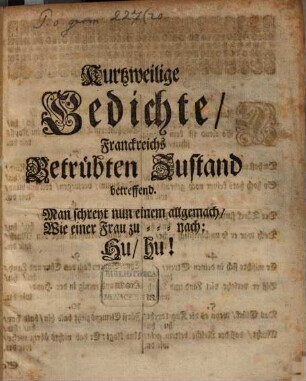 Po. germ. 227/20
Kurtzweilige
Gedichte/
Franckreichs
Betrübten Zustand
betreffend.
Man schreyt nun einem allgemach/
Wie einer Frau zu = = = nach:
Hu/ hu!
BIBLIOTHECA